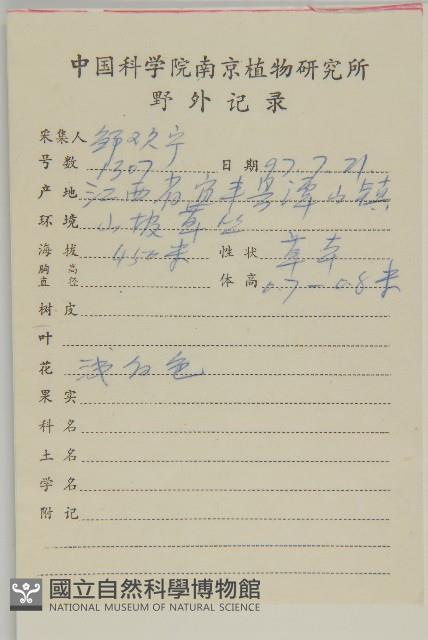 中国科学院南京植物研究所
野外记录
采集人 邹欢宁
号数 1307 日期 97.7.21.
产地 江西省宜丰县潭山镇
环境 山坡草丛
海拔 450米 性状 草本
胸高直径 体高 0.7—0.8米
树皮
叶
花 浅白色
果实
科名
土名
学名
附记
國立自然科學博物館
NATIONAL MUSEUM OF NATURAL SCIENCE